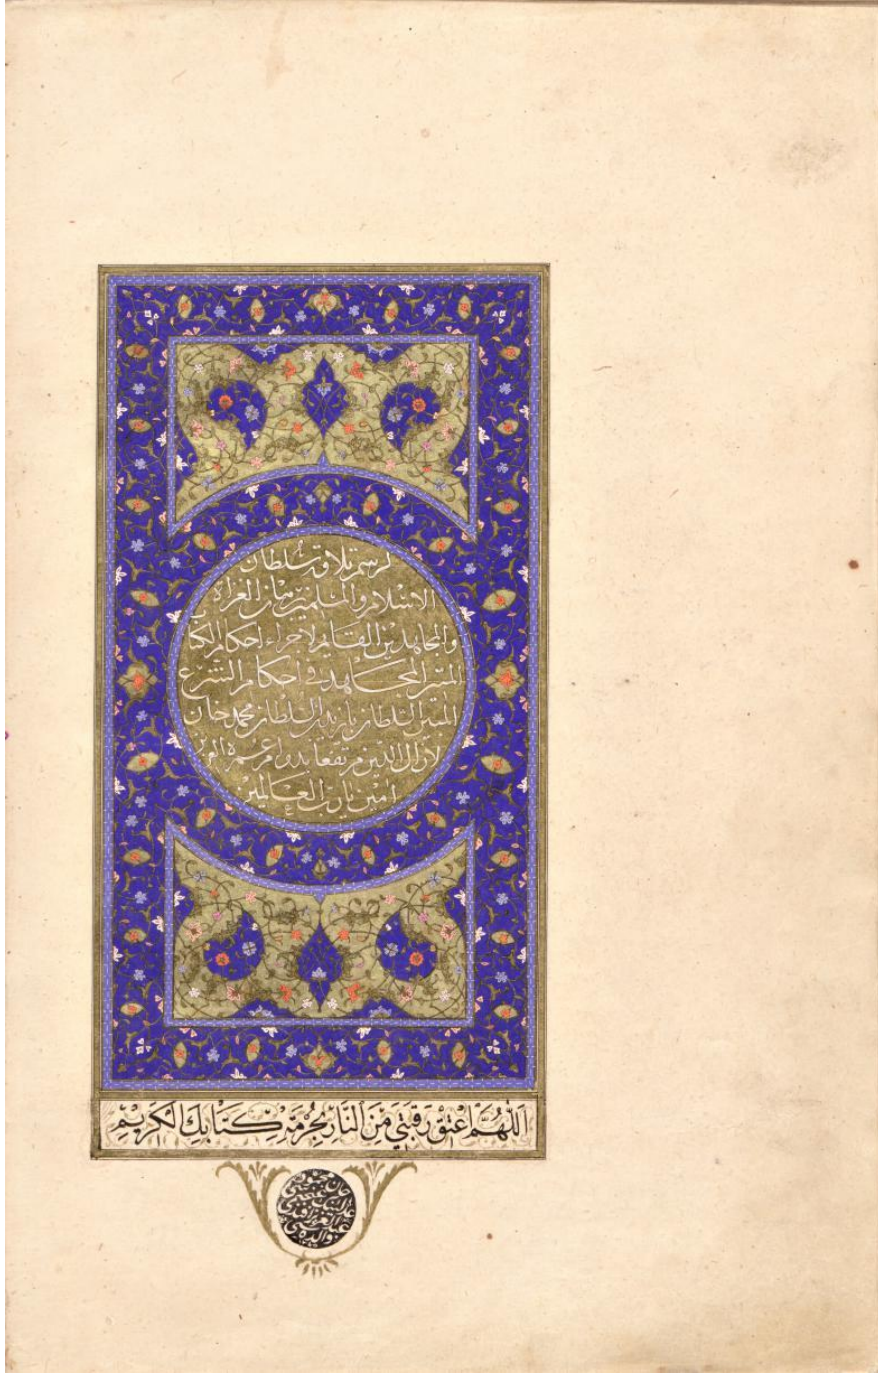 لرسم تلاوة سلطان
الاسلام والمسلمين زمان الغزاة
والمجاهدين القايم لاجراء احكام الكتاب
المنير المجاهد في احكام الشرع
المتين السلطان بايزيد بن السلطان محمد خان
لا زال الدين مرتفعا بدوام عمره
امين يا رب العالمين
اَللّٰهُمَّ اعْتِقْ رَقَبَتِي مِنَ النَّارِ بِحُرْمَةِ كِتَابِكَ الْكَرِيمِ